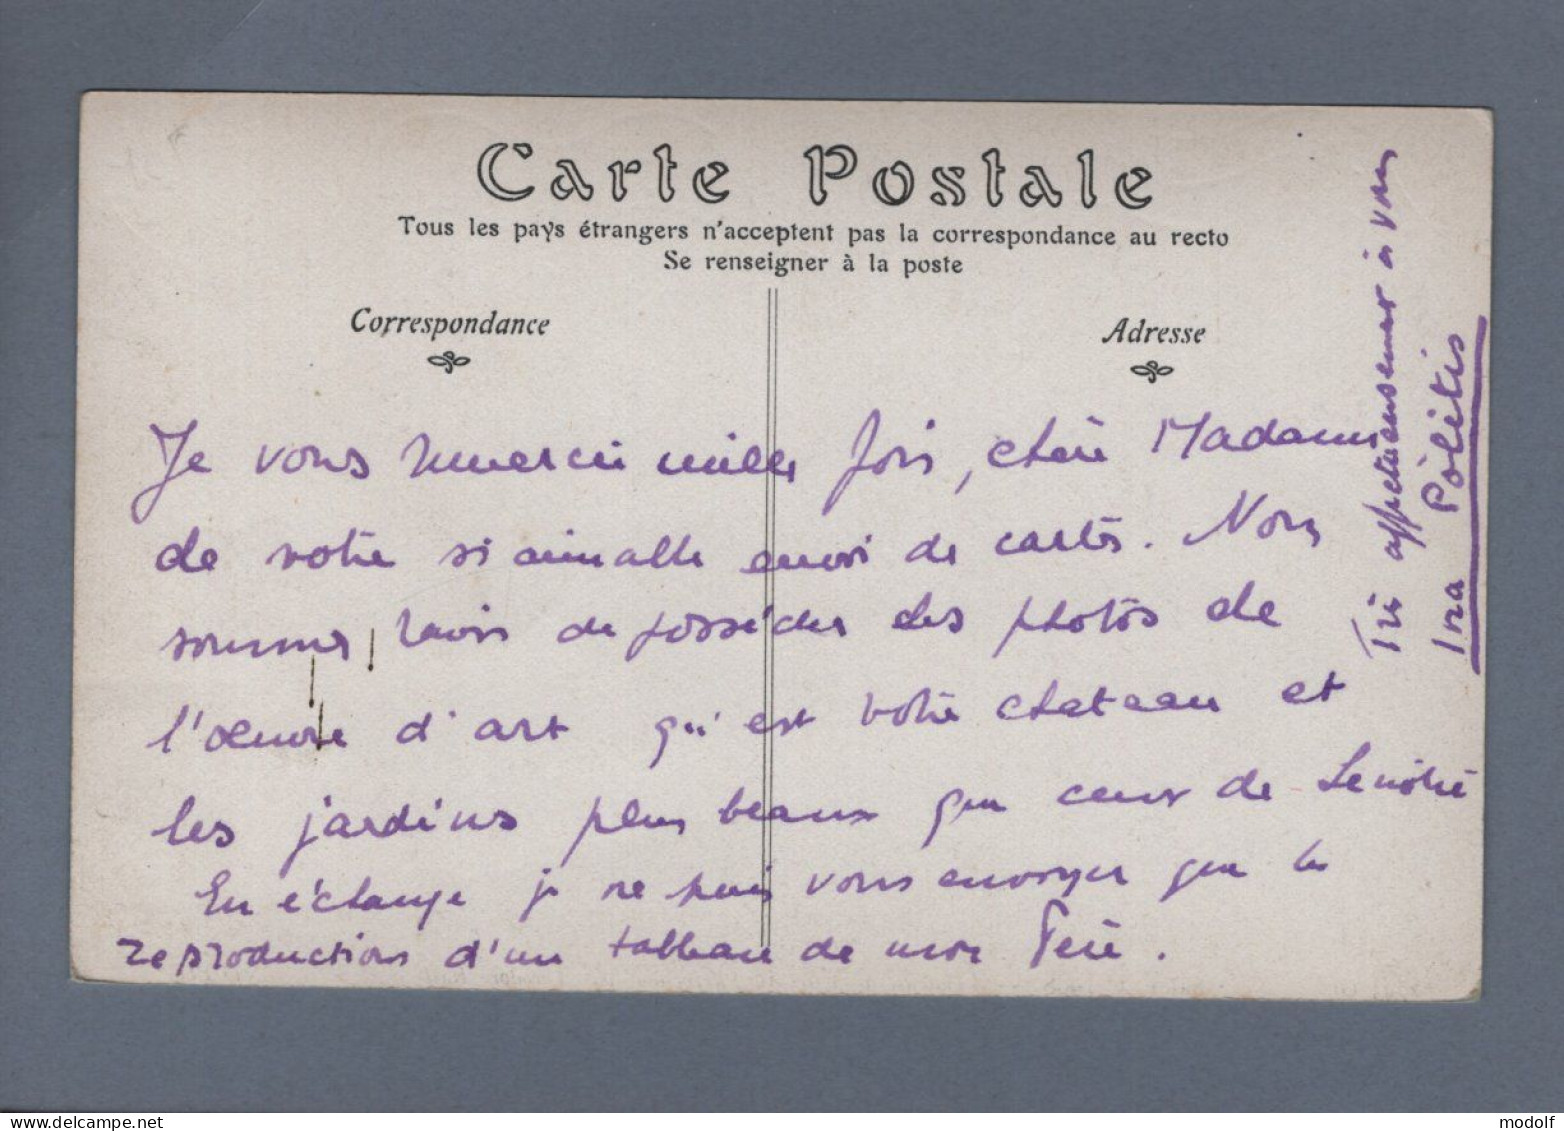 Carte Postale
Tous les pays étrangers n'acceptent pas la correspondance au recto
Se renseigner à la poste
Correspondance
Adresse
Je vous remercie mille fois, chère Madame
de votre si aimable envoi de cartes. Nous
sommes ravis de posséder des photos de
l'oeuvre d'art qu'est votre chateau et
les jardins plus beaux que ceux de Lenôtre
En échange je ne puis vous envoyer que la
reproduction d'un tableau de mon Père.
Très affectueusement à vous
Ina Politis
modolf